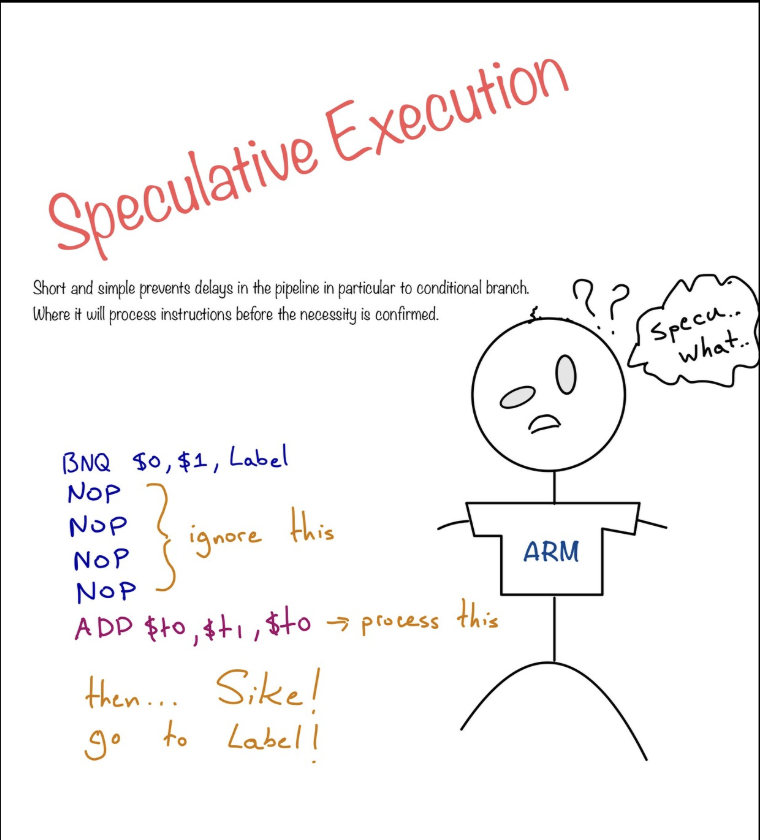 Speculative Execution
Short and simple prevents delays in the pipeline in particular to conditional branch.
Where it will process instructions before the necessity is confirmed.
??
Specu..
what..
BNQ $0, $1, Label
NOP
NOP
NOP
NOP
ignore this
ADD $t0, $t1, $t0 → process this
then... Sike!
go to Label!
ARM